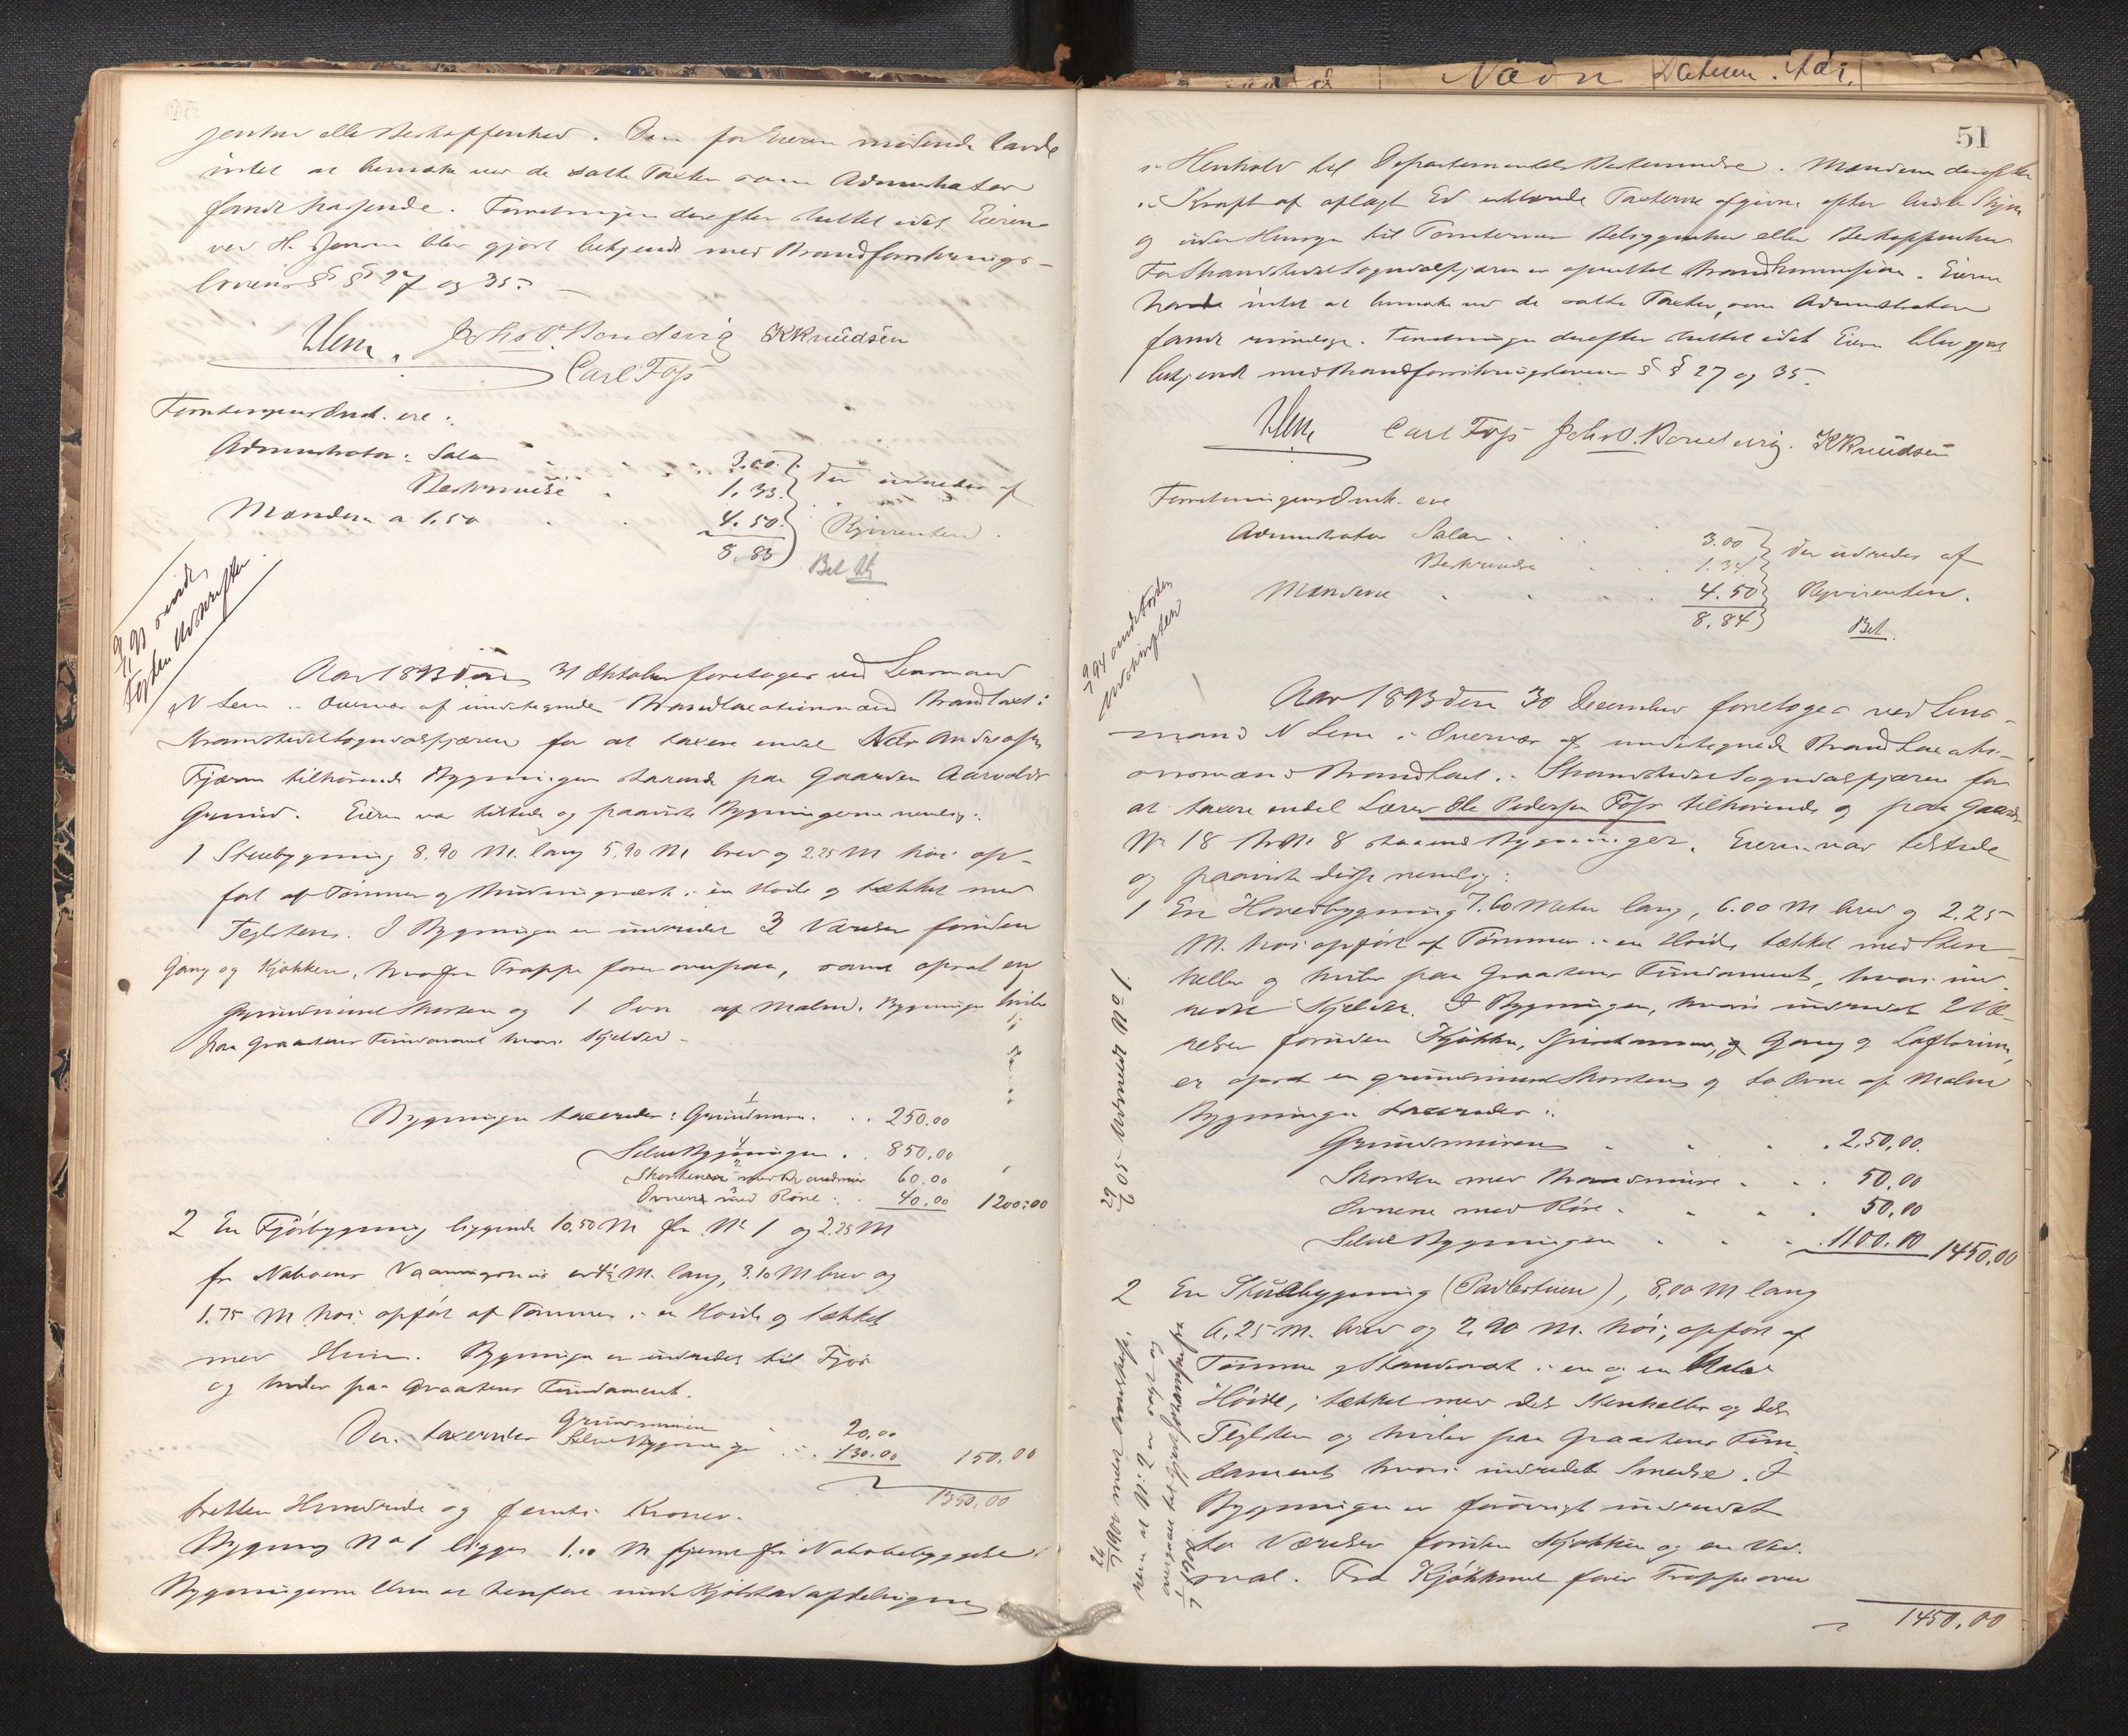 jenhed eller Beskaffenhed. Den for Eieren mødende havde
intet at bemærke ved de satte Taxter som Administrator
fandt passende. Forretningen derefter sluttet idet Eieren
ved H. Jensen blev gjort bekjendt med Brandforsikrings-
lovens §§ 27 og 35.
NLem. Joh. O. Bondevig KKnudsen
Carl Foss
Forretningens Omk. ere:
Administrator: Salær 3.00
Beskrivelse 1.33 Der udredes af
Mændene a 1.50 4.50 Rqvirenten.
8.83 Bet
9/1 93 sendt
Fogden Udskrifter
Aar 1893 den 31 Oktober foretoges ved Lensmand
N Lem i Overvær af undertegnede Brandtaxationsmænd Brandtaxt i
Strandstedet Sogndalsfjæren for at taxere endel Nils Andersen
Fjæren tilhørende Bygninger staaende paa Gaarden Aarvolds
Grund. Eieren var tilstede og paaviste Bygningerne nemlig:
1 Stuebygning 8,90 M. lang 5,90 M bred og 2.25 M høi op-
ført af Tømmer og Bindingsværk i en Høide og tækket med
Teglsten. I Bygningen er indredet 3 Værelser foruden
Gang og Kjøkken, hvorfra Trappe fører ovenpaa, samt opsat en
grundmuret Skorsten og 1 Ovn af Malm. Bygningen hviler
paa Graastens Fundament hvori Kjelder.
Bygningen taxeredes: Grundmuren 250.00
Selve Bygningen 850.00
Skorstenen med Brandmur 60.00
Ovnene med Røre 40.00 1200.00
2 En Fjøsbygning liggende 10,50 M fra No 1 og 2.25 M
fra Naboens Vaaningshus er 4½ M. lang, 3.10 M bred og
1.75 M høi opført af Tømmer i en Høide og tækket
med Huun. Bygningen er indredet til Fjøs
og hviler paa Graastens Fundament.
Den taxeredes Grundmuren 20,00
Selve Bygningen 130.00 150.00
1350,00
tretten Hundrede og femti Kroner.
Bygning No 1 ligger 1.00 M fjernt fra Nabobebyggelse
Bygningerne blive at henføre under Kjøbstadafdelingen
51
i Henhold til Departementets Bestemmelse. Mændene derefter
i Kraft af aflagt Ed erklærede Taxterne afgivne efter bedste Skjøn
og uden Hensyn til Tomternes Beliggenhed eller Beskaffenhed
For Strandstedet Sogndalsfjæren er oprettet Brandkommission. Eieren
havde intet at bemærke ved de satte Taxter, som Administrator
fandt rimelige. Forretningen derefter sluttet idet Eieren blev gjort
bekjendt med Brandforsikringslovens §§ 27 og 35.
NLem Carl Foss Joh. O. Bondevig. KKnudsen
Forretningens Omk. ere
Administrator Salær 3.00
Beskrivelse 1.34 Der udredes af
Mændene 4.50 Rqvirenten.
8.84 Bet.
9/1 94 sendt Fogden
Udskrifter
Aar 1893 den 30 December foretoges ved Lens-
mand N Lem i Overvær af undertegnede Brandtaxati-
onsmænd Brandtaxt i Strandstedet Sogndalsfjæren for
at taxere endel Lærer Ole Pedersen Foss tilhørende og paa Gaards
No 18 B.No 8 staaende Bygninger. Eieren var tilstede
og paaviste disse nemlig:
1 En Hovedbygning 7.60 Meter lang, 6.00 M bred og 2.25
M. høi opført af Tømmer i en Høide, tækket med Sten-
heller og hviler paa Graastens Fundament, hvori ind-
redet Kjelder. I Bygningen, hvori indredet 2 Væ-
relser foruden Kjøkken, Spisekammer, og Gang og Loftsrum,
er opsat en grundmuret Skorsten og to Ovne af Malm
Bygningen taxeredes:
Grundmuren 250,00.
Skorsten med Brandmure 50,00
Ovnene med Røre 50,00
Selve Bygningen 1100.00 1450,00
29/6 05 Udmeldt No 1.
2 En Stuebygning (Pavlestuen), 8,00 M lang
6,25 M. bred og 2,90 M. høi, opført af
Tømmer og Standværk i en og en halv
Høide, tækket med dels Stenheller og dels
Teglsten og hviler paa Graastens Fun-
dament hvori indredet Smedje. I
Bygningen er forøvrigt indredet
to Værelser foruden Kjøkken og en Ved-
sval. Fra Kjøkkenet fører Trappe oven
1450,00